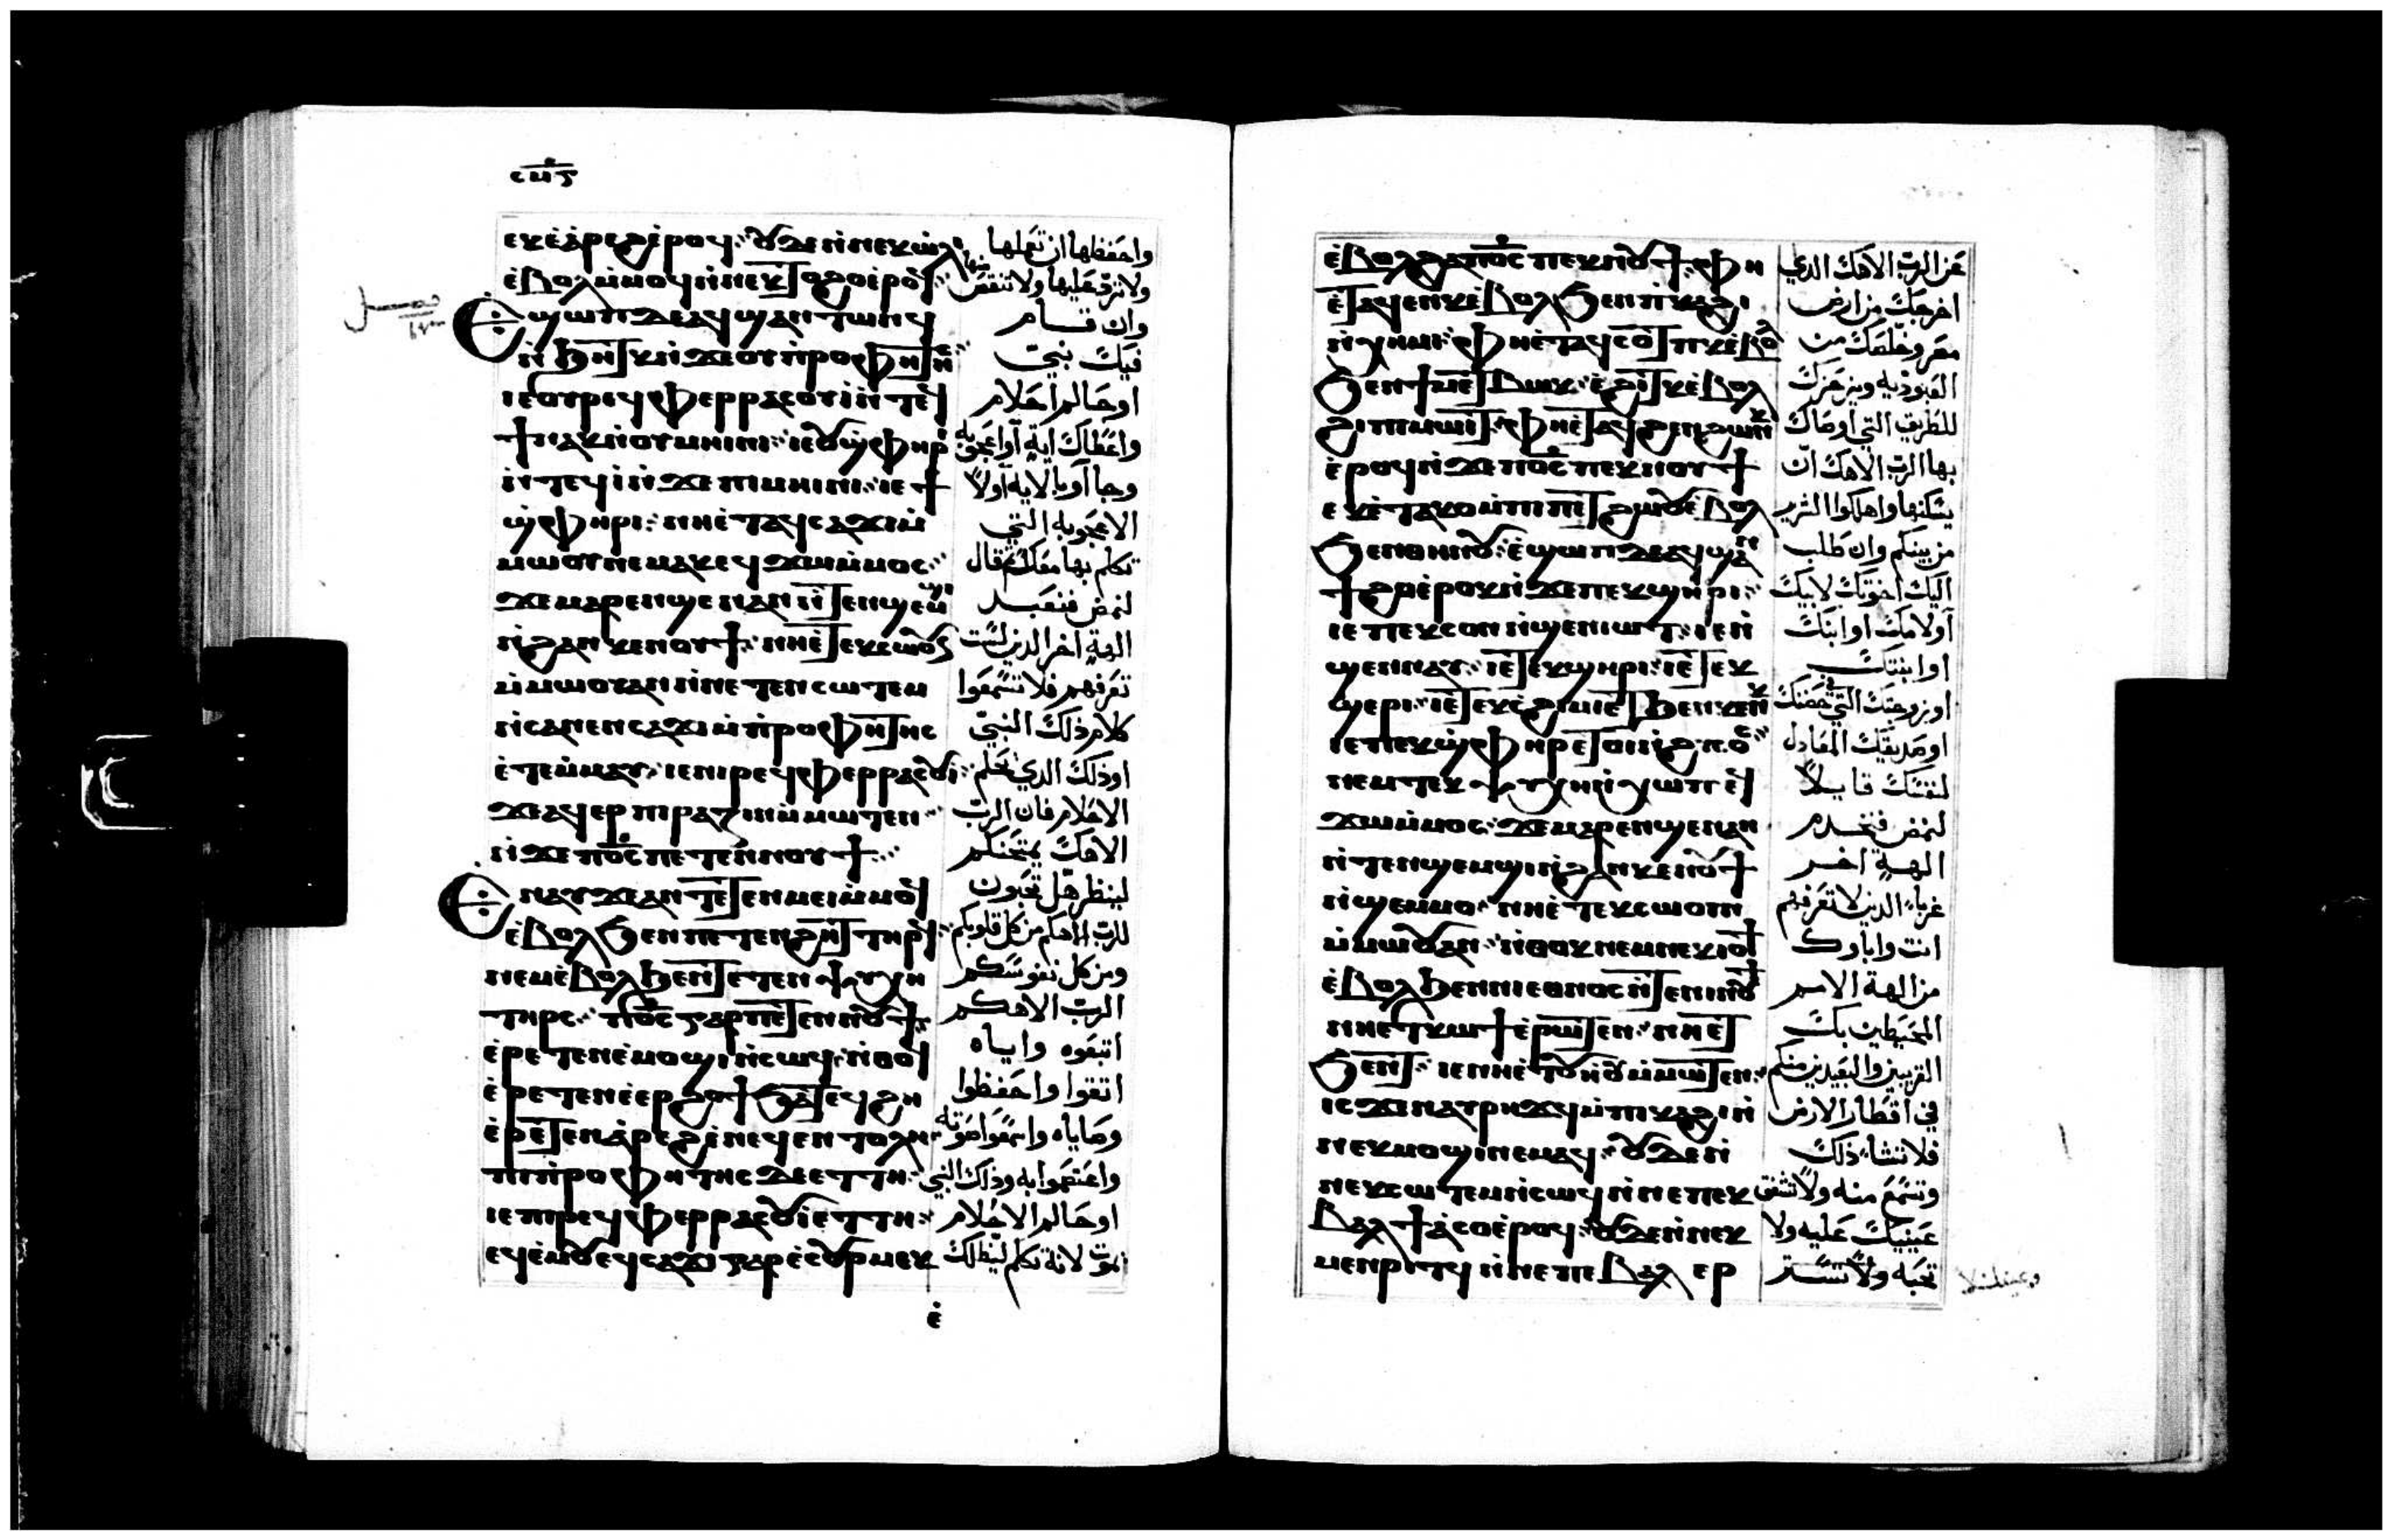 ⲥⲙⲋ
ⲉⲕⲉ̀ⲁ̀ⲣⲉϩ ⲉ̀ⲣⲟϥ ⲟⲩⲇⲉ ⲛ̀ⲛⲉⲕⲱ̀ⲗⲓ
ⲉ̀ⲃⲟⲗ ⲙ̀ⲙⲟϥ ⲛ̀ⲛⲉⲕⲧⲟϩⲟ ⲉ̀ⲣⲟϥ
Ⲉϣⲱⲡ ⲇⲉ ⲁϥϣⲁⲛⲧⲱⲛϥ
ⲛ̀ϧⲏⲧⲕ ⲛ̀ϫⲉ ⲟⲩⲡ̀ⲣⲟⲫⲏⲧⲏⲥ
ⲓⲉ ⲟⲩⲣⲉϥⲫⲉⲣⲣⲁⲥⲟⲩⲓ̀ ⲛ̀ⲧⲉϥ
ϯ ⲛⲁⲕ ⲛ̀ⲟⲩⲙⲏⲓⲛⲓ ⲓⲉ ⲟⲩϣ̀ⲫⲏⲣⲓ
ⲛ̀ⲧⲉϥⲓ̀ ⲛ̀ϫⲉ ⲡⲓⲙⲏⲓⲛⲓ ⲓⲉ ϯ
ϣ̀ⲫⲏⲣⲓ ⲛⲏⲉ̀ⲧⲁϥⲥⲁϫⲓ ⲙ̀
ⲙⲱⲟⲩ ⲛⲉⲙⲁⲕ ⲉϥϫⲱ ⲙ̀ⲙⲟⲥ
ϫⲉ ⲙⲁⲣⲉⲛϣⲉⲛⲁⲛ ⲛ̀ⲧⲉⲛϣⲉⲙϣⲓ
ⲛ̀ϩⲁⲛⲕⲉⲛⲟⲩϯ ⲛⲏⲉ̀ⲧⲉⲕⲥⲱⲟⲩⲛ
ⲙ̀ⲙⲱⲟⲩ ⲁⲛ ⲛ̀ⲛⲉⲧⲉⲛⲥⲱⲧⲉⲙ
ⲛ̀ⲥⲁ ⲛⲉⲛⲥⲁϫⲓ ⲙ̀ⲡ̀ⲣⲟⲫⲏⲧⲏⲥ
ⲉ̀ⲧⲉⲙ̀ⲙⲁⲩ ⲓⲉ ⲡⲓⲣⲉϥⲫⲉⲣⲣⲁⲥⲟⲩⲓ
ϫⲉ ⲁϥⲉⲣⲡⲓⲣⲁⲍⲓⲛ ⲙ̀ⲙⲱⲧⲉⲛ
ⲛ̀ϫⲉ ⲡⲟ̅ⲥ̅ ⲡⲉⲧⲉⲛⲛⲟⲩϯ
Ⲉⲛⲁⲩ ϫⲉ ⲁⲛ ⲧⲉⲧⲉⲛⲙⲉⲓ ⲙ̀ⲙⲟϥ
ⲉ̀ⲃⲟⲗ ϧⲉⲛ ⲡⲉⲧⲉⲛϩⲏⲧ ⲧⲏⲣϥ
ⲛⲉⲙ ⲉ̀ⲃⲟⲗ ϧⲉⲛ ⲧⲉⲧⲉⲛⲯⲩⲭⲏ
ⲧⲏⲣⲥ ⲡⲟ̅ⲥ̅ ⲅⲁⲣ ⲡⲉⲧⲉⲛⲛⲟⲩϯ
ⲉ̀ⲣⲉⲧⲉⲛⲉ̀ⲙⲟϣⲓ ⲛ̀ⲥⲱϥ ⲛ̀ⲑⲟϥ
ⲉ̀ⲣⲉⲧⲉⲛⲉ̀ⲉⲣϩⲟϯ ϧⲁⲧⲉϥϩⲏ
ⲉ̀ⲣⲉⲧⲉⲛⲁ̀ⲣⲉϩ ⲉ̀ⲛⲉϥⲉⲛⲧⲟⲗⲏ
ⲡⲓⲡ̀ⲣⲟⲫⲏⲧⲏⲥ ⲇⲉ ⲉⲧⲧⲏ
ⲓⲉ ⲡⲓⲣⲉϥⲫⲉⲣⲣⲁⲥⲟⲩⲓ ⲉⲧⲧⲏ
ⲉϥⲉ̀ⲙⲟⲩ ⲉϥⲥⲁϫⲓ ⲅⲁⲣ ⲉ̀ⲉⲟⲩⲣⲙⲉⲕ
ⲉ̀
واحفظها ان تعملها
ولا تزد عليها ولا تنقص منها
وان قام
فيك نبي
او حالم احلام
واعطاك اية او اعجوبه
وجا او بالايه اولا
الاعجوبه التي
تكلم بها معك قال
لنمض فنعبد
الهة اخر الذين لست
تعرفهم فلا تسمعوا
كلام ذلك النبي
او ذلك الذي يحلم
الاحلام فان الرب
الاهك يمتحنكم
لينظر هل تحبون
للرب الاهكم من كل قلوبكم
ومن كل نفوسكم
الرب الاهكم
اتبعوه واياه
اتقوا واحفظوا
وصاياه واسمعوا صوته
واعتصموا به وذلك النبي
او حالم الاحلام
يموت لانه تكلم ليضلك
ⲉ̀ⲃⲟⲗϩⲁ ⲡⲟ̅ⲥ̅ ⲡⲉⲕⲛⲟⲩϯ ⲫⲏ
ⲉ̀ⲧⲁϥⲉⲛⲕ ⲉ̀ⲃⲟⲗ ϧⲉⲛ ⲡ̀ⲕⲁϩⲓ
ⲛ̀ⲭⲏⲙⲓ ⲫⲏⲉ̀ⲧⲁϥⲥⲟⲧⲡⲕ ⲉ̀ⲃⲟⲗ
ϧⲉⲛ ϯⲙⲉⲧⲃⲱⲕ ⲉ̀ϩⲓⲧⲕ ⲉ̀ⲃⲟⲗ
ϩⲓ ⲡⲓⲙⲱⲓⲧ ⲫⲏⲉ̀ⲧⲁϥϩⲉⲛϩⲱⲛⲕ
ⲉ̀ⲣⲟϥ ⲛ̀ϫⲉ ⲡⲟ̅ⲥ̅ ⲡⲉⲕⲛⲟⲩϯ
ⲉⲕⲉ̀ⲧⲁⲕⲟ ⲙ̀ⲡⲓⲡⲉⲧϩⲱⲟⲩ ⲉ̀ⲃⲟⲗ
ϧⲉⲛ ⲑⲏⲛⲟⲩ ⲉ̀ϣⲱⲡ ⲇⲉ ⲁϥϣⲁⲛ
ϯϩⲟ ⲉ̀ⲣⲟⲕ ⲛ̀ϫⲉ ⲡⲉⲕϣⲏⲣⲓ
ⲓⲉ ⲡⲉⲕⲥⲟⲛ ⲛ̀ϣⲉⲛⲓⲱⲧ ⲓⲉ ⲛ̀
ϣⲉⲛⲙⲁⲩ ⲓⲉ ⲡⲉⲕϣⲏⲣⲓ ⲓⲉ ⲧⲉⲕ
ϣⲉⲣⲓ ⲓⲉ ⲧⲉⲕⲥ̀ϩⲓⲙⲓ ⲉⲧϧⲉⲛ ⲕⲉⲛⲕ
ⲓⲉ ⲡⲉⲕϣ̀ⲫⲏⲣ ⲉⲧⲟⲓ ⲛ̀ϩⲩⲡⲟⲥ
ⲛⲉⲙ ⲧⲉⲕⲯⲩⲭⲏ ⲛ̀ⲭⲱⲡ ⲉϥ
ϫⲱ ⲙ̀ⲙⲟⲥ ϫⲉ ⲙⲁⲣⲉⲛϣⲉⲛⲁⲛ
ⲛ̀ⲧⲉⲛϣⲉⲙϣⲓ ⲛ̀ϩⲁⲛⲕⲉⲛⲟⲩϯ
ⲛ̀ϣⲉⲙⲙⲟ ⲛⲏⲉ̀ⲧⲉⲕⲥⲱⲟⲩⲛ
ⲙ̀ⲙⲱⲟⲩ ⲁⲛ ⲛ̀ⲑⲟⲕ ⲛⲉⲙ ⲛⲉⲕⲓⲟϯ
ⲉ̀ⲃⲟⲗ ϧⲉⲛ ⲛⲓⲉⲑⲛⲟⲥ ⲛ̀ⲧⲉ ⲛⲓⲛⲟⲩϯ
ⲛⲏⲉⲧⲕⲱϯ ⲉ̀ⲣⲱⲧⲉⲛ ⲛⲏⲉⲧ
ϧⲉⲛⲧ ⲓⲉ ⲛⲏⲉ̀ⲧⲟⲩⲏⲟⲩ ⲙ̀ⲙⲱⲧⲉⲛ
ⲓⲥϫⲉⲛ ⲁⲩⲣⲏϫϥ ⲙ̀ⲡⲕⲁϩⲓ ⲛ̀
ⲛⲉⲕⲙⲟϣⲓ ⲛⲉⲙⲁϥ ⲟⲩⲇⲉ ⲛ̀
ⲛⲉⲕⲥⲱⲧⲉⲙ ⲛ̀ⲥⲱϥ ⲛ̀ⲛⲉ ⲡⲉⲕ
ⲃⲁⲗ ϯⲁ̀ⲥⲟ ⲉ̀ⲣⲟϥ ⲟⲩⲇⲉ ⲛ̀ⲛⲉⲕ
ⲙⲉⲛⲣⲓⲧϥ ⲛ̀ⲛⲉ ⲡⲉⲕⲃⲁⲗ ⲉⲣ
عن الرب الاهك الذي
اخرجك من ارض
مصر وخلصك من
العبوديه ويزحزك
للطريق التي اوصاك
بها الرب الاهك ان
يسكنها واهلكوا الشرير
من بينكم وان طلب
اليك اخوتك لابيك
او لامك او ابنك
او ابنتك
او زوجتك التي في حضنك
او صديقك المعادل
لنفسك قايلا
لنمض فنخدم
الهة اخر
غرباء الذين لا تعرفهم
انت واباوك
من الهة الامم
المحيطين بك
القريبين والبعيدين منكم
في اقطار الارض
فلا تشاء ذلك
وتسمع منه ولا تشفق
عينيك عليه ولا
تحبه ولا تستر